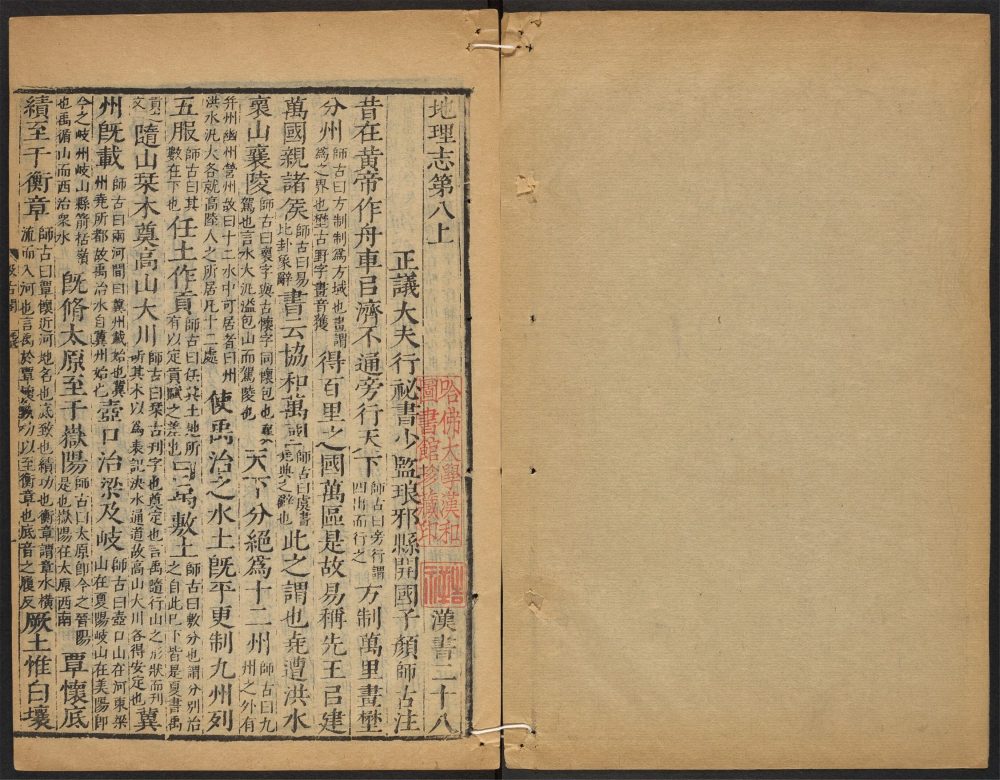 地理志第八上 漢書二十八
正議大夫行祕書少監琅邪縣開國子顏師古注
昔在黃帝作舟車㠯濟不通旁行天下師古曰旁行謂四出而行之方制萬里畫壄
分州師古曰方制制爲方域也畫謂爲之界也壄古野字畫音獲得百里之國萬區是故易稱先王㠯建
萬國親諸侯師古曰易比卦象辭書云協和萬國師古曰虞書堯典之辭也此之謂也堯遭洪水
褱山襄陵師古曰褱字與古懷字同懷包也襄駕也言水大汎溢包山而駕陵也天下分絕爲十二州師古曰九州之外有
幷州幽州營州故曰十二水中可居者曰州洪水汎大各就高陸人之所居凡十二處使禹治之水土旣平更制九州列
五服師古曰其數在下也任土作貢師古曰任其土地所有以定貢賦之差也曰禹敷土師古曰敷分也謂分別治之自此已下皆是夏書禹
貢之文隨山栞木奠高山大川師古曰栞古刊字也奠定也言禹隨行山之形狀而刊所其木以爲表記決水通道故高山大川各得安定也冀
州旣載師古曰兩河間曰冀州載始也冀州堯所都故禹治水自冀州始也壺口治梁及岐師古曰壺口山在河東梁山在夏陽岐山在美陽卽
今之岐州岐山縣箭栝嶺也禹循山而西治衆水旣脩太原至于嶽陽師古曰太原卽今之晉陽是也嶽陽在太原西南覃懷底
績至于衡章師古曰覃懷近河地名也底致也績功也衡章謂章水橫流而入河也言禹於覃懷致功以至衡章也底音之履反厥土惟白壤
汲古閣
哈佛大學漢和
圖書館珍藏印